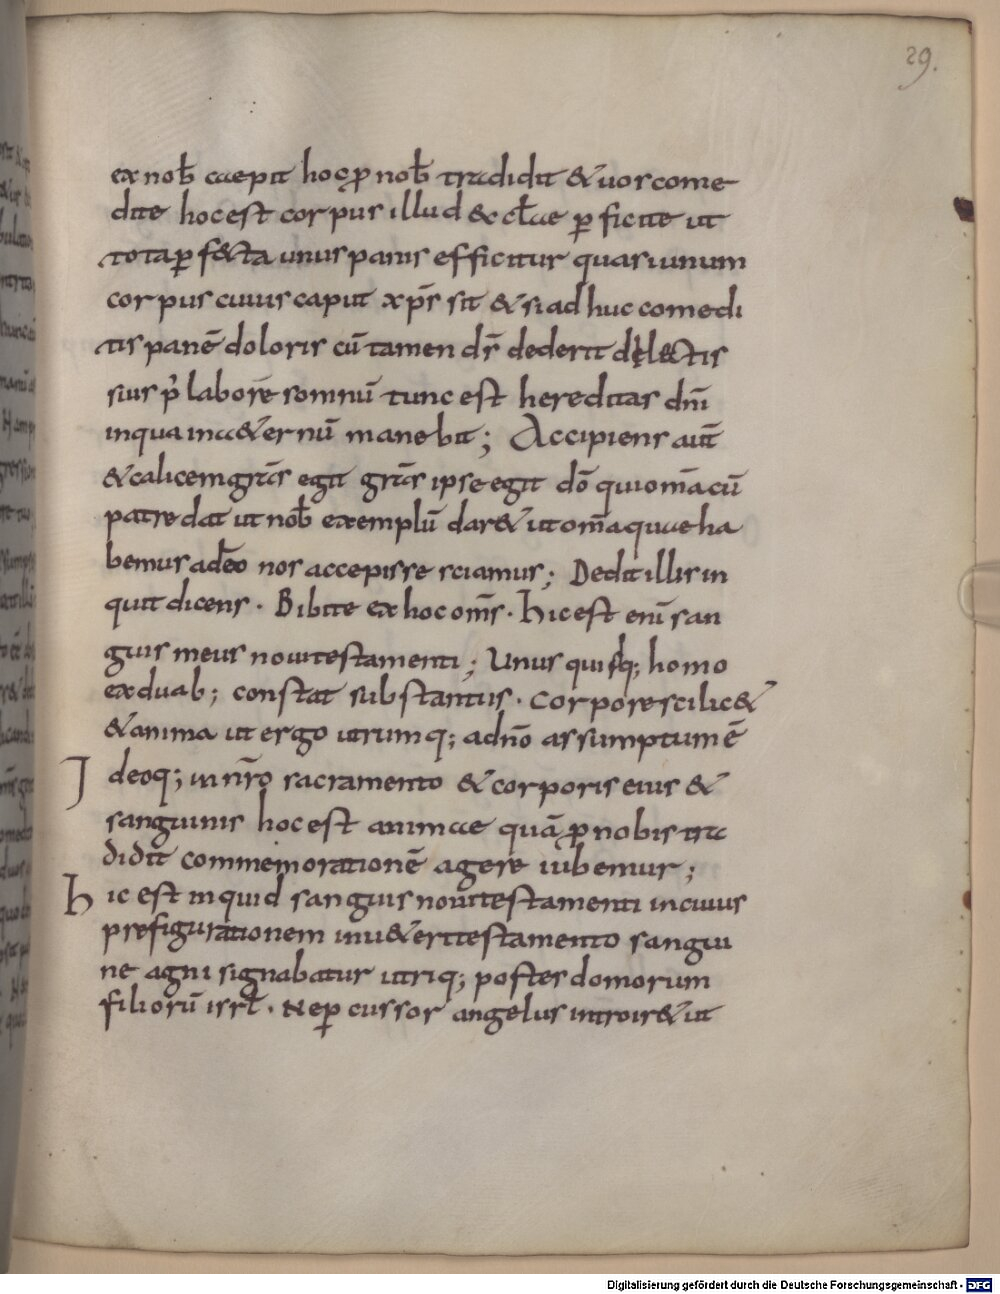 29.
ex nob̄ caepit hoc ꝓ nob̄ tradidit & uos come
dite hoc est corpus illud & ecl̄ae ꝑficite ut
tota ꝑfecta unus panis efficitur quasi unum
corpus cuius caput xp̄s sit & si adhuc comedi
tis panē doloris cū tamen d̄s dederit dęlectis
suis p̄ labore somnū tunc est hereditas dn̄i
in qua in aeternū manebit; Accipiens aut̄
& calicem grās egit grās ipse egit dō qui om̄a cū
patre dat ut nob̄ exemplū dar& ut om̄a quae ha
bemus a deo nos accepisse sciamus; Dedit illis in
quit dicens · Bibite ex hoc om̄s · hic est enī san
guis meus noui testamenti; Unus quisq; homo
ex duab; constat substantiis · corpore scilic&
& anima ut ergo utrumq; a dn̄o assumptum ē
Ideoq; in nr̄o sacramento & corporis eius &
sanguinis hoc est animae quā ꝓ nobis tra
didit commemorationē agere iubemur;
hic est inquid sanguis noui testamenti in cuius
prefigurationem in u&eri testamento sangui
ne agni signabatur utriq; postes domorum
filiorū isrl̄ · Ne ꝑcussor angelus introir& ut
Digitalisierung gefördert durch die Deutsche Forschungsgemeinschaft - DFG